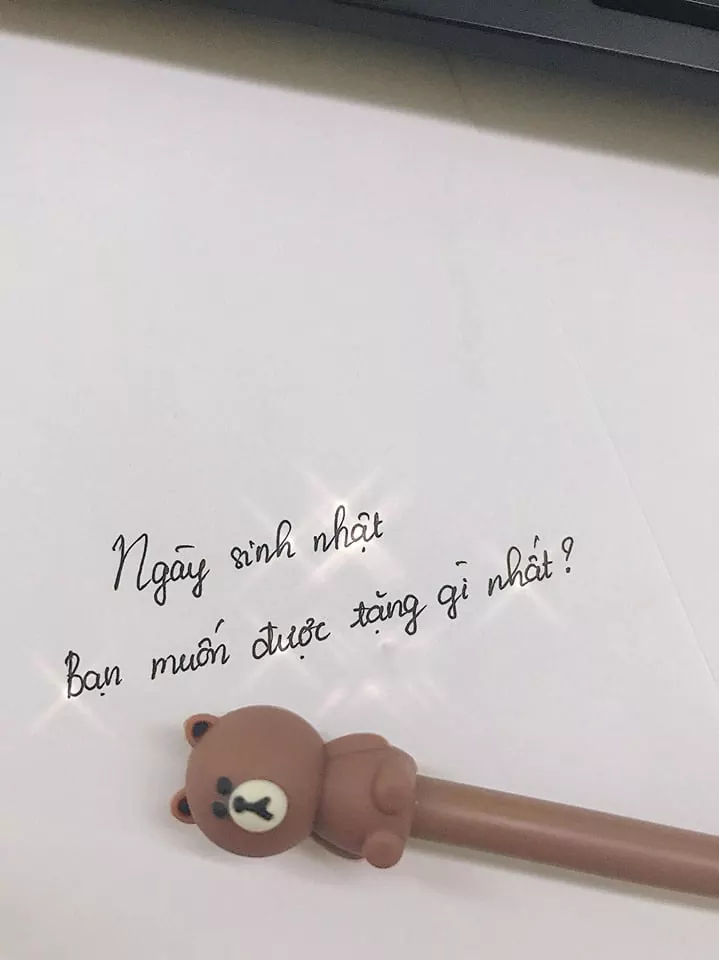 Ngày sinh nhật
Bạn muốn được tặng gì nhất?